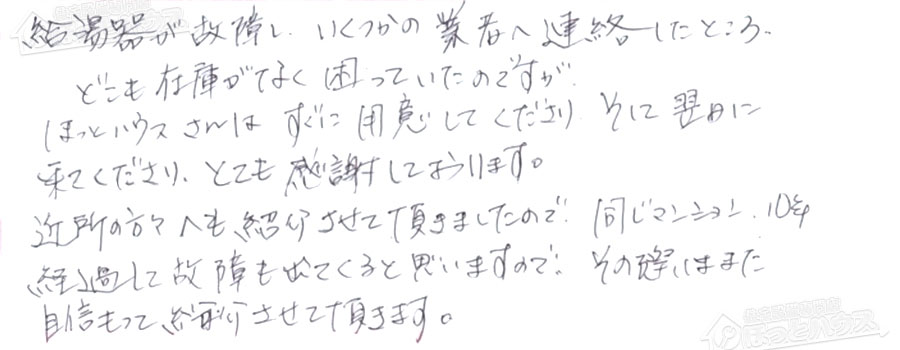 給湯器が故障し、いくつかの業者へ連絡したところ、
どこも在庫がなく困っていたのですが、
ほっとハウスさんは すぐに用意してくださり、そして翌日に
来てくださり、とても感謝しております。
近所の方々へも紹介させて頂きましたので、同じマンション、10年
経過して故障も出てくると思いますので、その際はまた
自信もって紹介させて頂きます。
ほっとハウス